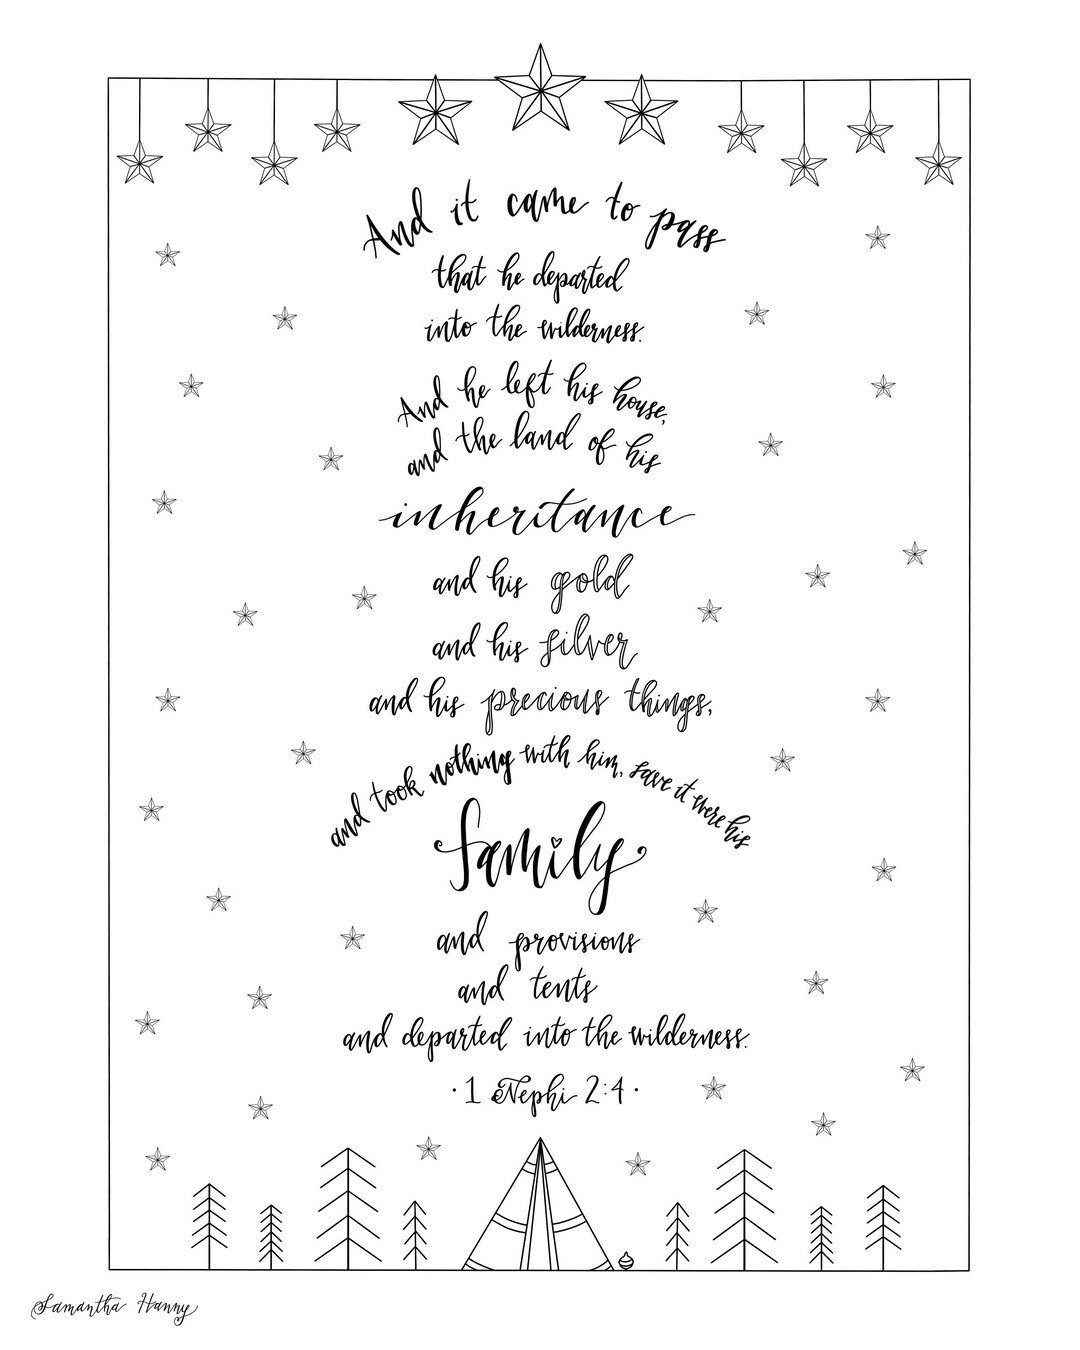 And it came to pass
that he departed
into the wilderness.
And he left his house,
and the land of his
inheritance
and his gold
and his silver
and his precious things,
and took nothing with him, save it were his
family
and provisions
and tents
and departed into the wilderness.
· 1 Nephi 2:4 ·
Samantha Hanny